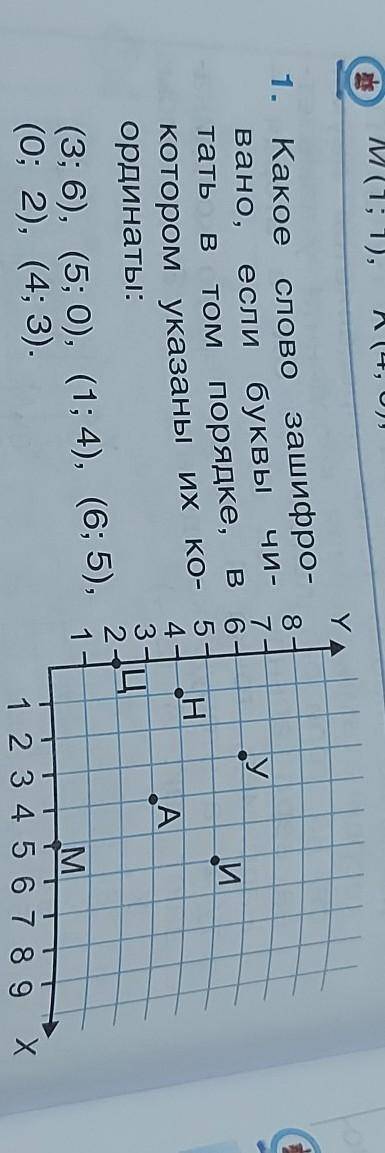 М(1; 1),
1. Какое слово зашифро-
вано, если буквы чи-
тать в том порядке, в
котором указаны их ко-
ординаты:
(3; 6), (5; 0), (1; 4), (6; 5),
(0; 2), (4; 3).
Y
8
7
6
5
4
3
2
1
У
И
Н
А
Ц
М
1 2 3 4 5 6 7 8 9 X